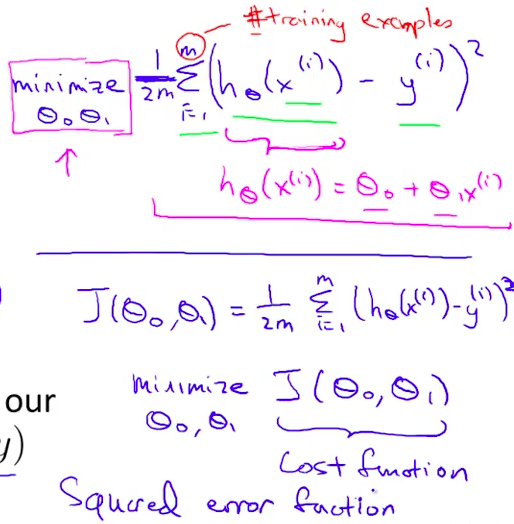 # training examples
minimize θ₀ θ₁ 1/2m Σᵢ₌₁ᵐ (h_θ(x⁽ⁱ⁾) - y⁽ⁱ⁾)²
h_θ(x⁽ⁱ⁾) = θ₀ + θ₁x⁽ⁱ⁾
J(θ₀,θ₁) = 1/2m Σᵢ₌₁ᵐ (h_θ(x⁽ⁱ⁾) - y⁽ⁱ⁾)²
our
y)
minimize J(θ₀, θ₁)
θ₀, θ₁
Cost function
Squared error faction